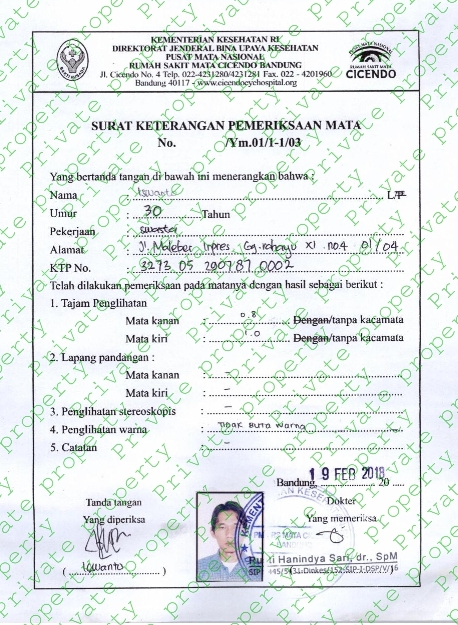 KEMENTERIAN KESEHATAN RI
DIREKTORAT JENDERAL BINA UPAYA KESEHATAN
PUSAT MATA NASIONAL
RUMAH SAKIT MATA CICENDO BANDUNG
Jl. Cicendo No. 4 Telp. 022-4231280/4231281 Fax. 022 - 4201960
Bandung 40117 - www.cicendoeyehospital.org
BAKTI HUSADA
PUSAT MATA NASIONAL
RUMAH SAKIT MATA
CICENDO
SURAT KETERANGAN PEMERIKSAAN MATA
No. /Ym.01/1-1/03
Yang bertanda tangan di bawah ini menerangkan bahwa :
Nama : Iswanto L/P
Umur : 30 Tahun
Pekerjaan : swasta
Alamat : Jl. Maleber Inpres Gg. rahayu XI no.4 01/04
KTP No. : 3273 05 290787 0002
Telah dilakukan pemeriksaan pada matanya dengan hasil sebagai berikut :
1. Tajam Penglihatan
Mata kanan : 0.8 Dengan/tanpa kacamata
Mata kiri : 1.0 Dengan/tanpa kacamata
2. Lapang pandangan :
Mata kanan : -
Mata kiri : -
3. Penglihatan stereoskopis : -
4. Penglihatan warna : Tidak Buta Warna
5. Catatan : -
Bandung, 19 FEB 2018 20
Tanda tangan
Yang diperiksa
( Iswanto )
Dokter
Yang memeriksa
Hanindya Sari, dr., SpM
SIP
Private property